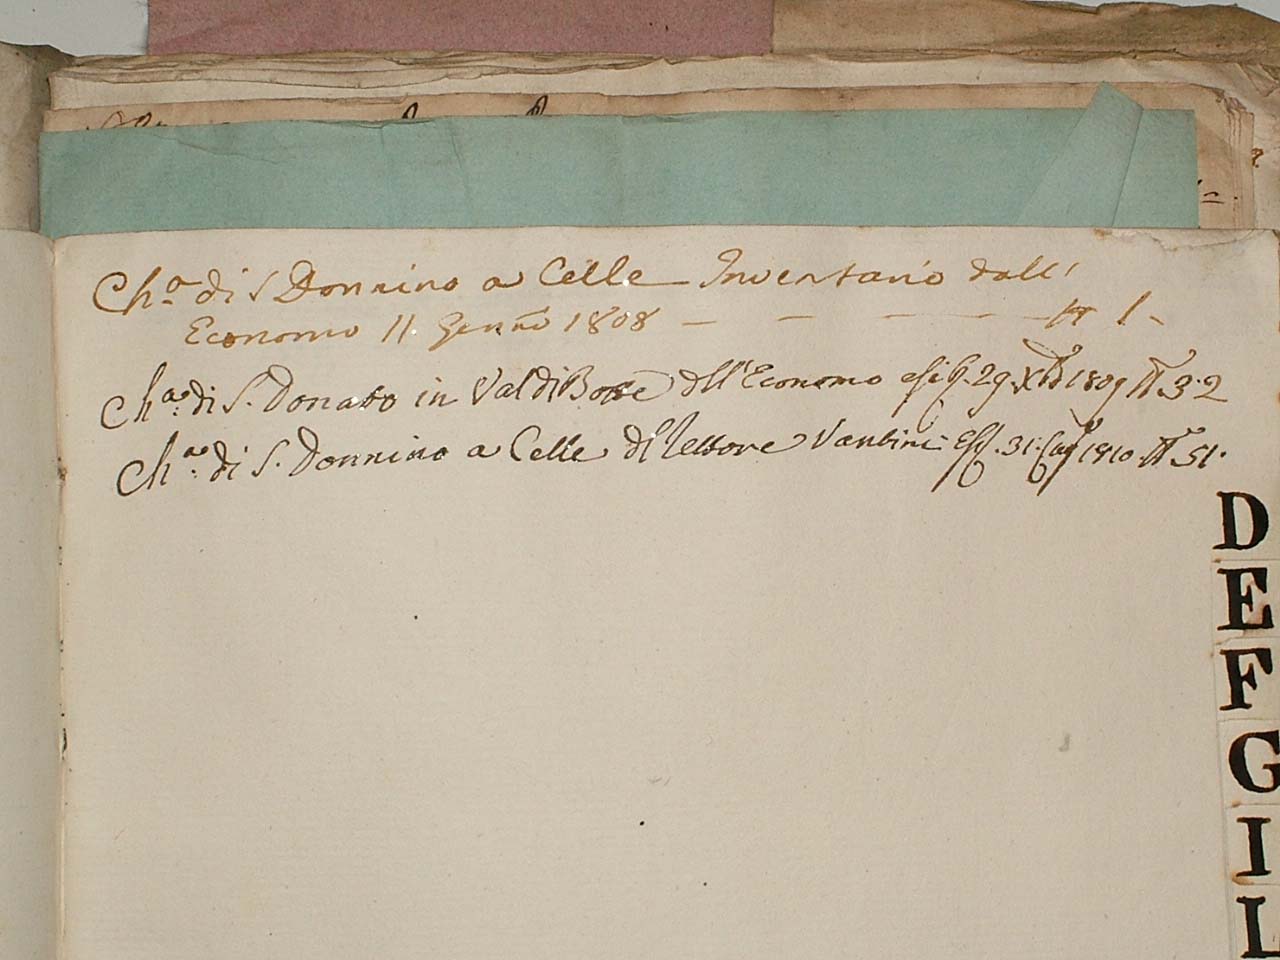 Ch.ª di S Donnino a Celle Inventario dall'
Economo 11. Genn.º 1808 — — — — 1 -
Ch.ª di S. Donato in Val di Botte dell'Economo 29. Xbre 1809 3.2
Ch.ª di S. Donnino a Celle dl Rettore Vantini 31. Lug 1810 51.
D
E
F
G
I
L